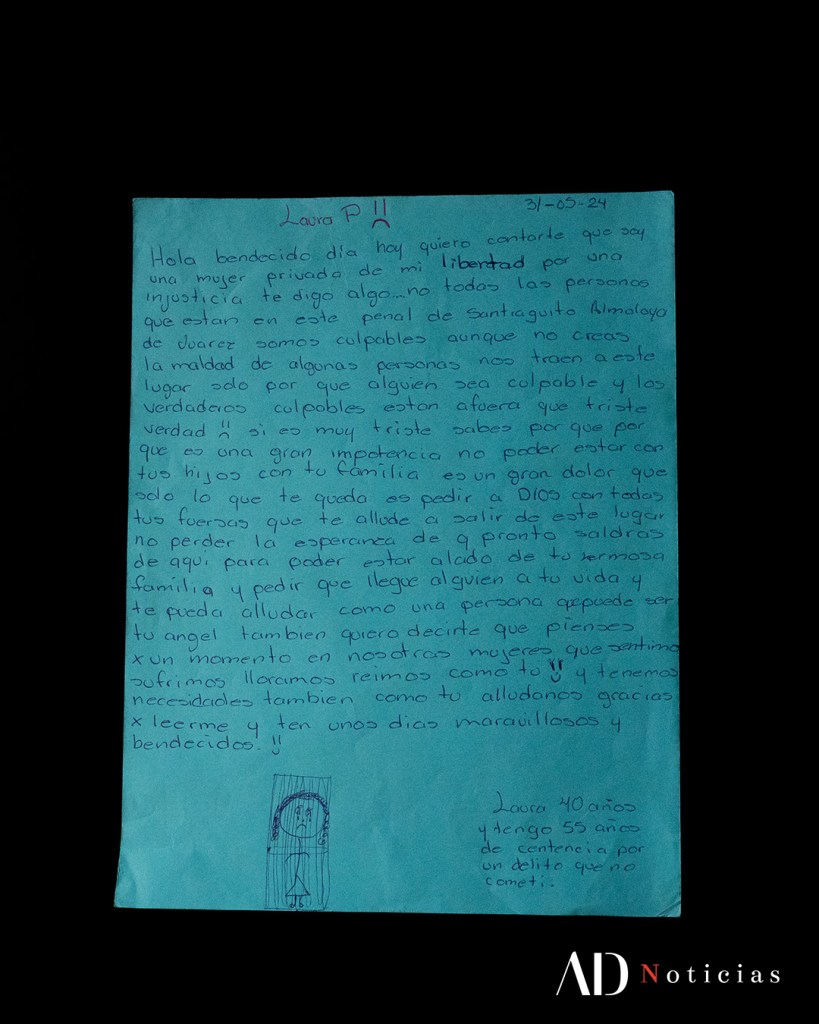 Laura P !!
31-05-24
Hola bendecido día hoy quiero contarte que soy
una mujer privada de mi libertad por una
injusticia te digo algo...no todas las personas
que estan en este penal de Santiaguito Almoloya
de Juarez somos culpables aunque no creas
la maldad de algunas personas nos traen a este
lugar solo por que alguien sea culpable y los
verdaderos culpables estan afuera que triste
verdad !! si es muy triste sabes por que por
que es una gran impotencia no poder estar con
tus hijos con tu familia es un gran dolor que
solo lo que te queda es pedir a Dios con todas
tus fuersas que te allude a salir de este lugar
no perder la esperanza de q pronto saldras
de aqui para poder estar alado de tu hermosa
familia y pedir que llegue alguien a tu vida y
te pueda alludar como una persona q puede ser
tu angel tambien quiero decirte que pienses
x un momento en nosotras mujeres que sentimo
sufrimos lloramos reimos como tu !! y tenemos
necesidades tambien como tu alludanos gracias
x leerme y ten unos dias maravillosos y
bendecidos. !!
Laura 40 años
y tengo 55 años
de centencia por
un delito que no
cometi.
AD Noticias